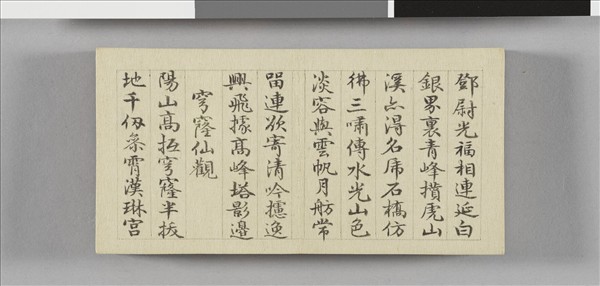 鄧尉光福相連延白
銀界裏青峰攢虎山
溪亦得名席石橋仿
彿三嘯傳水光山色
淡容與雲帆月舫常
畱連欲寄清吟攄逸
興飛據高峰塔影邊
穹窿仙觀
陽山高極穹窿半拔
地千仭參霄漢琳宮